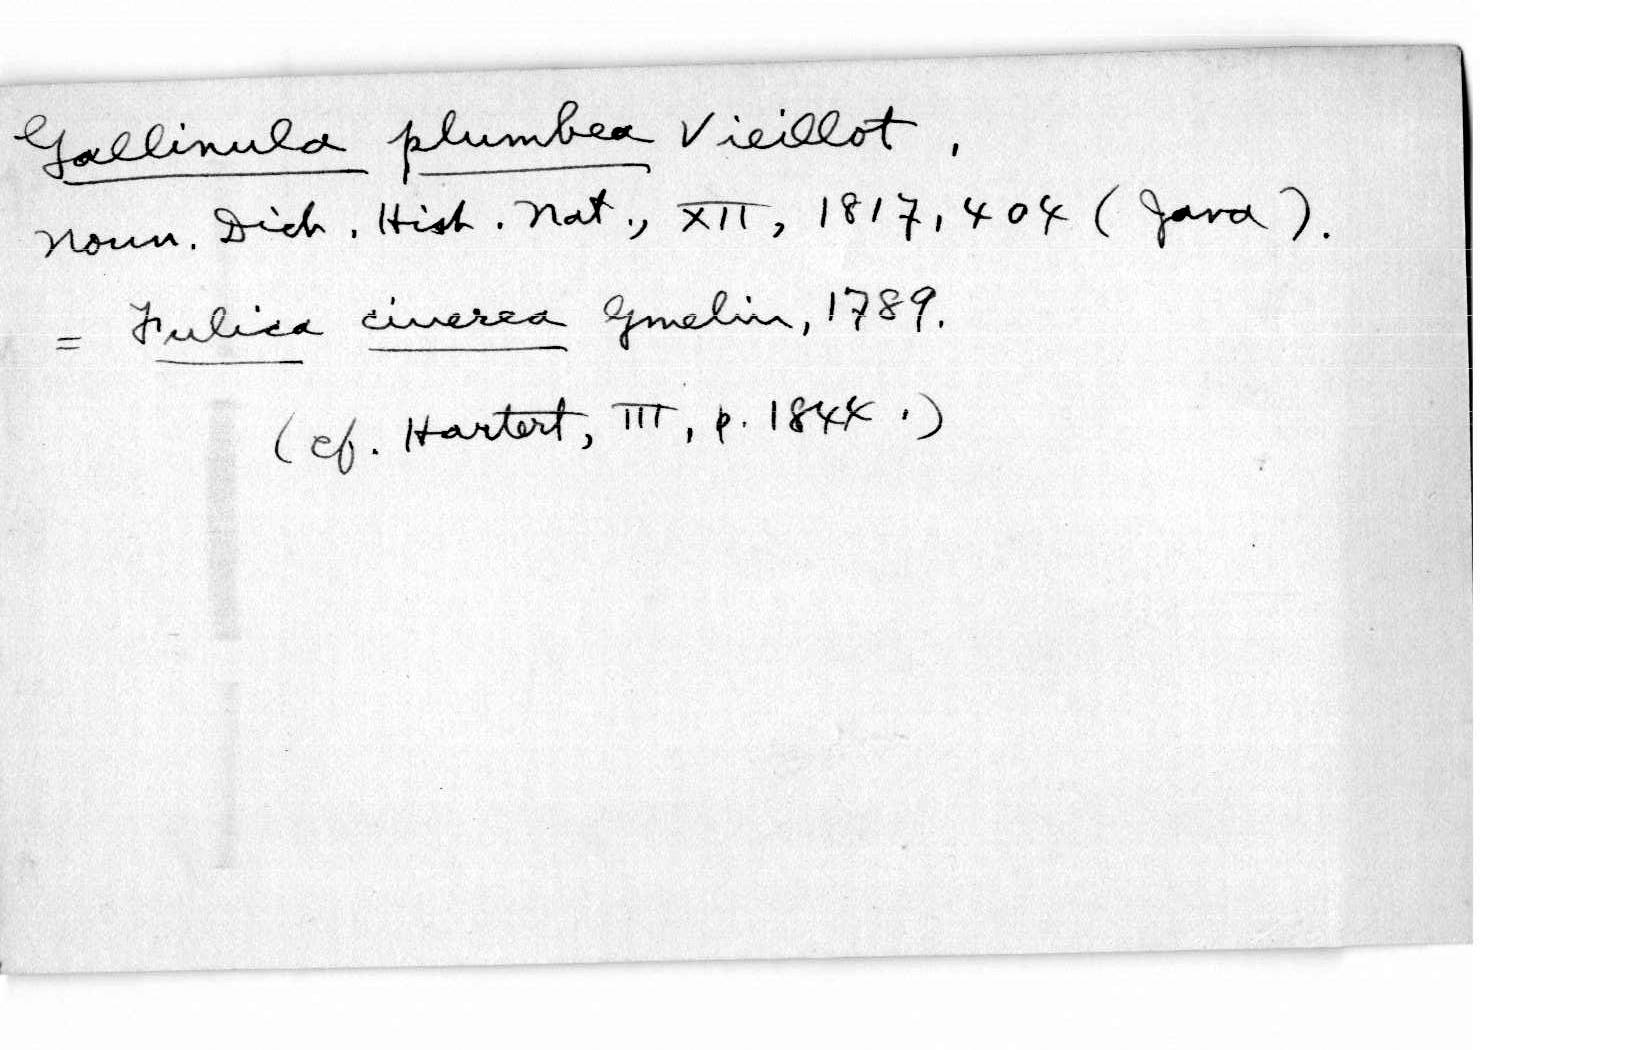 Gallinula plumbea Vieillot,
Nouv. Dict. Hist. Nat., XII, 1817, 404 (Java).
= Fulica cinerea Gmelin, 1789.
(cf. Hartert, III, p. 1844.)